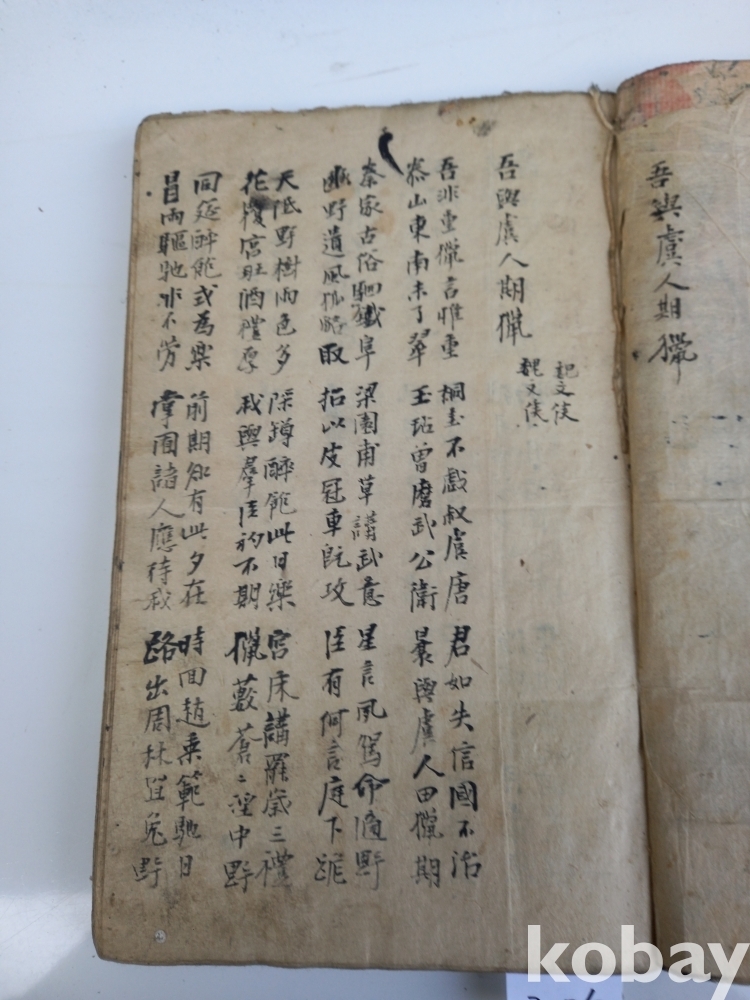 吾與虞人期獵
吾與虞人期獵
魏文侯
魏文侯
吾非重獵言惟重 桐圭不戱叔虞唐 君如失信國不治
泰山東南未了翠 玉玷曾磨武公衛 曩與虞人田獵期
秦家古俗駟鐵阜 梁園甫草講武意 星言夙駕命適野
野遺風狐貉取 招以皮冠車旣攻 臣有何言庭下跽
天低野樹雨色多 深罇醉飽此日樂 宮床講罷歲三禮
花覆宮 酒禮厚 我與羣臣初不期 獵藪蒼〻澤中野
回筵醉飽式為樂 前期卻有此夕在 時回趙乘範馳日
冒雨驅馳非不勞 掌囿諸人應待我 路出周林罝兎野
kobay